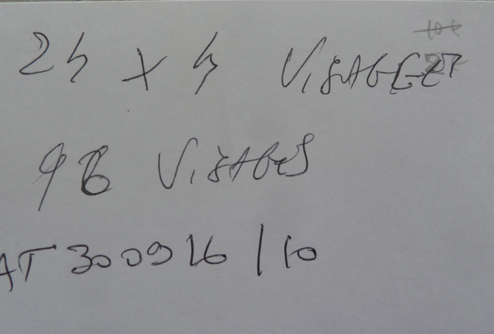 24 x 4 VISAGES
96 VISAGES
AT 300916/10